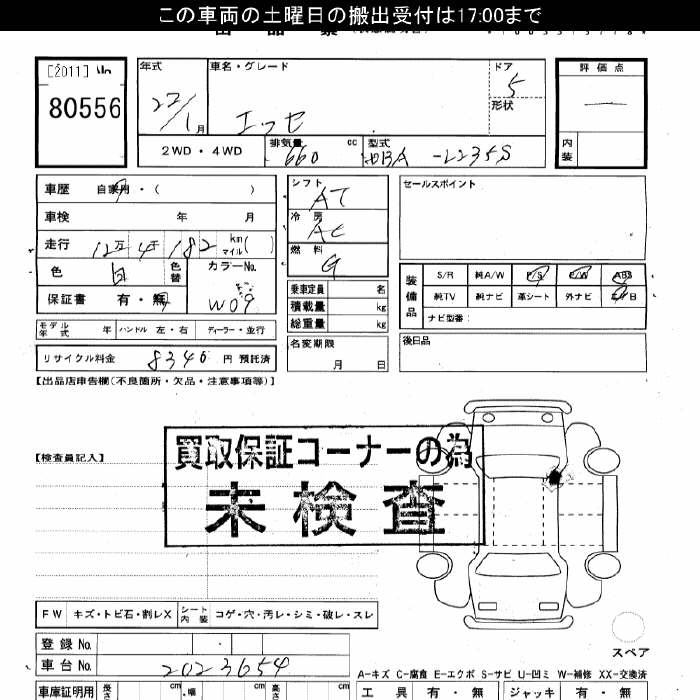 この車両の土曜日の搬出受付は17:00まで
[2011]
80556
年式
22/1月
車名・グレード
エッセ
ドア
5
形状
評価点
内装
2WD・4WD
排気量 660 cc
型式 -L235S
車歴 自家用・( )
車検 年 月
走行 12万4千182 km マイル( )
色 白 色替
カラーNo. W09
保証書 有・無
シフト AT
冷房 AC
燃料 G
乗車定員 名
積載量 kg
総重量 kg
名変期限 月 日
セールスポイント
装備品
S/R 純A/W P/S P/W ABS
純TV 純ナビ 革シート 外ナビ エアB
ナビ型番:
後日品
モデル年式 年 ハンドル 左・右 ディーラー・並行
リサイクル料金 8340 円 預託済
【出品店申告欄(不良箇所・欠品・注意事項等)】
【検査員記入】
買取保証コーナーの為
未検査
FW キズ・トビ石・割レX シート内装 コゲ・穴・汚レ・シミ・破レ・スレ
スペア
登録 No.
車台 No. 2023654
A-キズ C-腐食 E-エクボ S-サビ U-凹ミ W-補修 XX-交換済
車庫証明用 長さ cm 幅 cm 高さ cm
工具 有・無 ジャッキ 有・無